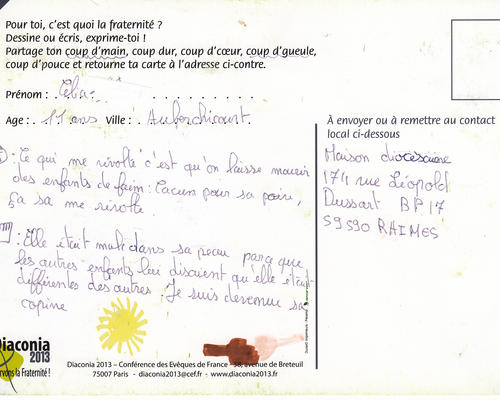 Pour toi, c'est quoi la fraternité ?
Dessine ou écris, exprime-toi !
Partage ton coup d'main, coup dur, coup d'cœur, coup d'gueule,
coup d'pouce et retourne ta carte à l'adresse ci-contre.
Prénom :
Age : 11 ans Ville : Auberchicourt
Ce qui me révolte c'est qu'on laisse mourir
des enfants de faim : Cacun pour sa poire,
ça sa me révolte.
Elle était mal dans sa peau parce que
les autres enfants lui disaient qu'elle était
différentes des autres. Je suis devenue sa
copine
À envoyer ou à remettre au contact
local ci-dessous
Maison diocesaine
174 rue Léopold
Dussart BP 17
59590 RAIMES
Diaconia
2013
ervons la Fraternité !
Diaconia 2013 – Conférence des Evêques de France - 58, avenue de Breteuil
75007 Paris - diaconia2013@cef.fr - www.diaconia2013.fr